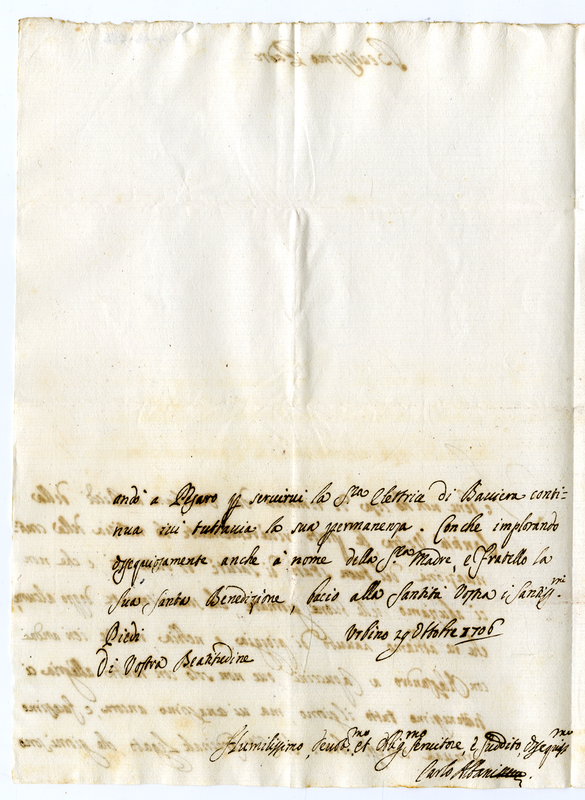 andò a Pesaro p servirvi la S.ra Elettrice di Baviera conti-
nua ivi tuttavia la sua permanenza. Con che implorando
ossequiosamente anche à nome della S.ra Madre, e fratello la
Sua Santa Benedizione, bacio alla Santità Vostra i Santiss.mi
Piedi Urbino 29 Ottobre 1706
Di Vostra Beatitudine
Humilissimo, devot.mo et Oblig.mo servitore, e suddito ossequiss.mo
Carlo Albani